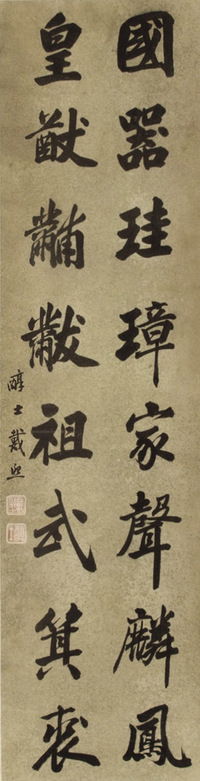 國器珪璋家聲麟鳳
皇猷黼黻祖武箕裘
醇士戴熙